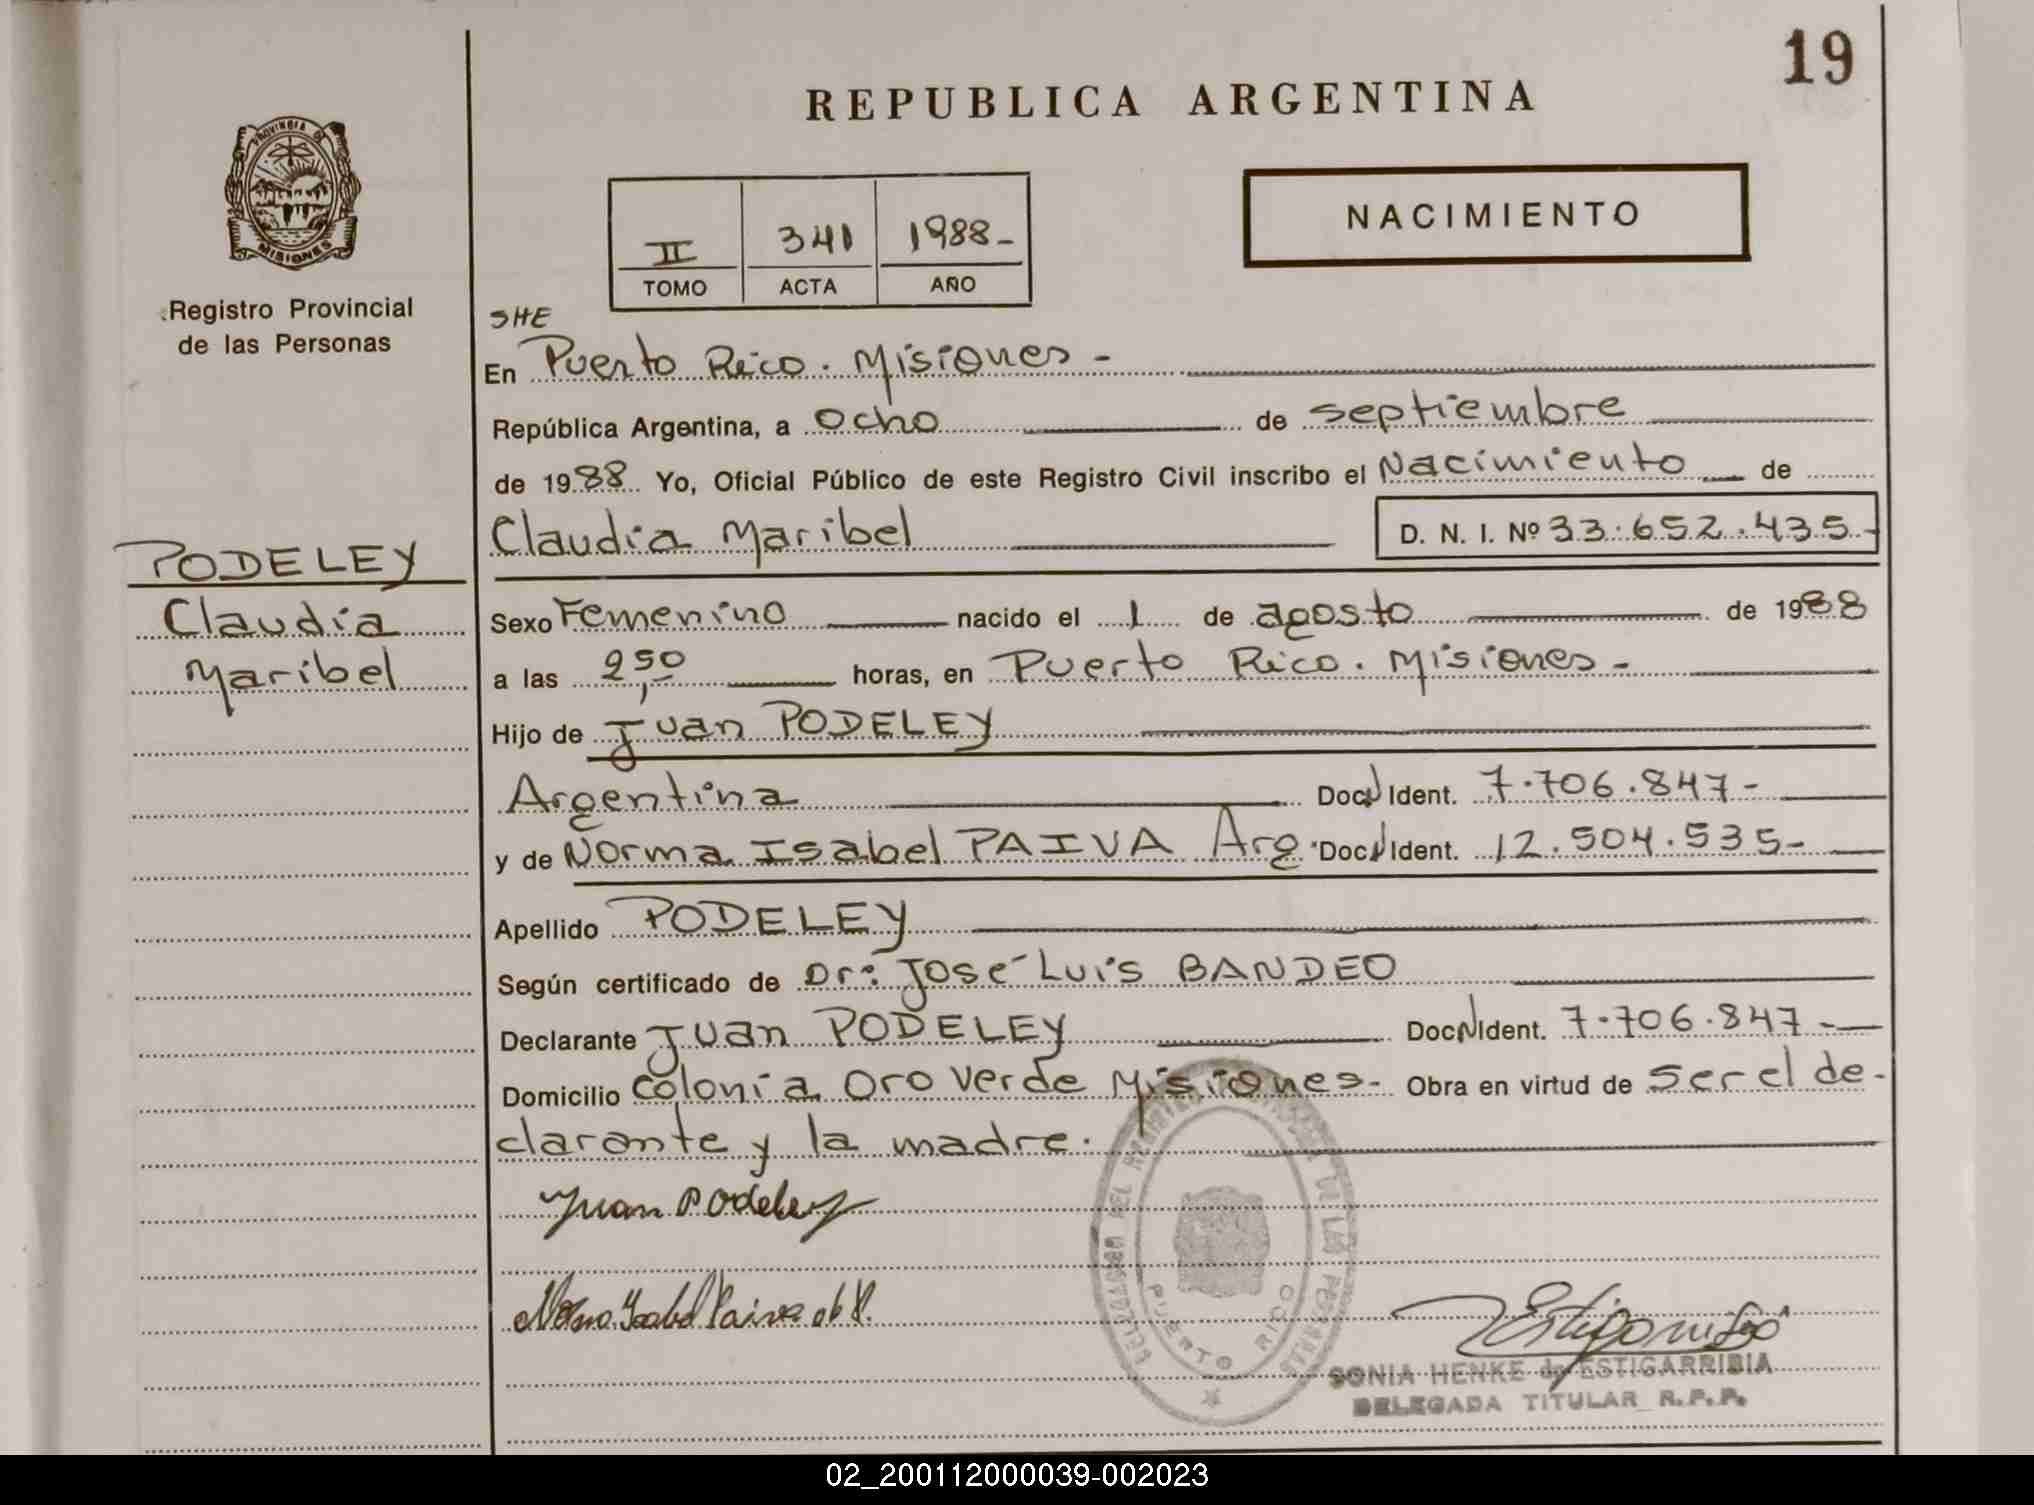 19
REPUBLICA ARGENTINA
PROVINCIA D
MISIONES
Registro Provincial
de las Personas
NACIMIENTO
II 341 1988-
TOMO ACTA AÑO
SHE
En Puerto Rico. Misiones -
República Argentina, a ocho de septiembre
de 1988 Yo, Oficial Público de este Registro Civil inscribo el Nacimiento de
Claudia Maribel D. N. I. Nº 33.652.435-
PODELEY
Claudia
Maribel
Sexo Femenino nacido el 1 de agosto de 1988
a las 2,50 horas, en Puerto Rico. Misiones -
Hijo de Juan PODELEY
Argentina Doc N Ident. 7.706.847-
y de Norma Isabel PAIVA Arg. Doc N Ident. 12.504.535-
Apellido PODELEY
Según certificado de Dr: José Luis BANDEO
Declarante Juan PODELEY Doc N Ident. 7.706.847-
Domicilio colonia Oro Verde Misiones- Obra en virtud de ser el de-
clarante y la madre.
Juan Podeley
Norma Isabel Paiva de P.
PUERTO RICO
DE LAS PERSONAS
SONIA HENKE de ESTIGARRIBIA
DELEGADA TITULAR R.P.P.
02_200112000039-002023